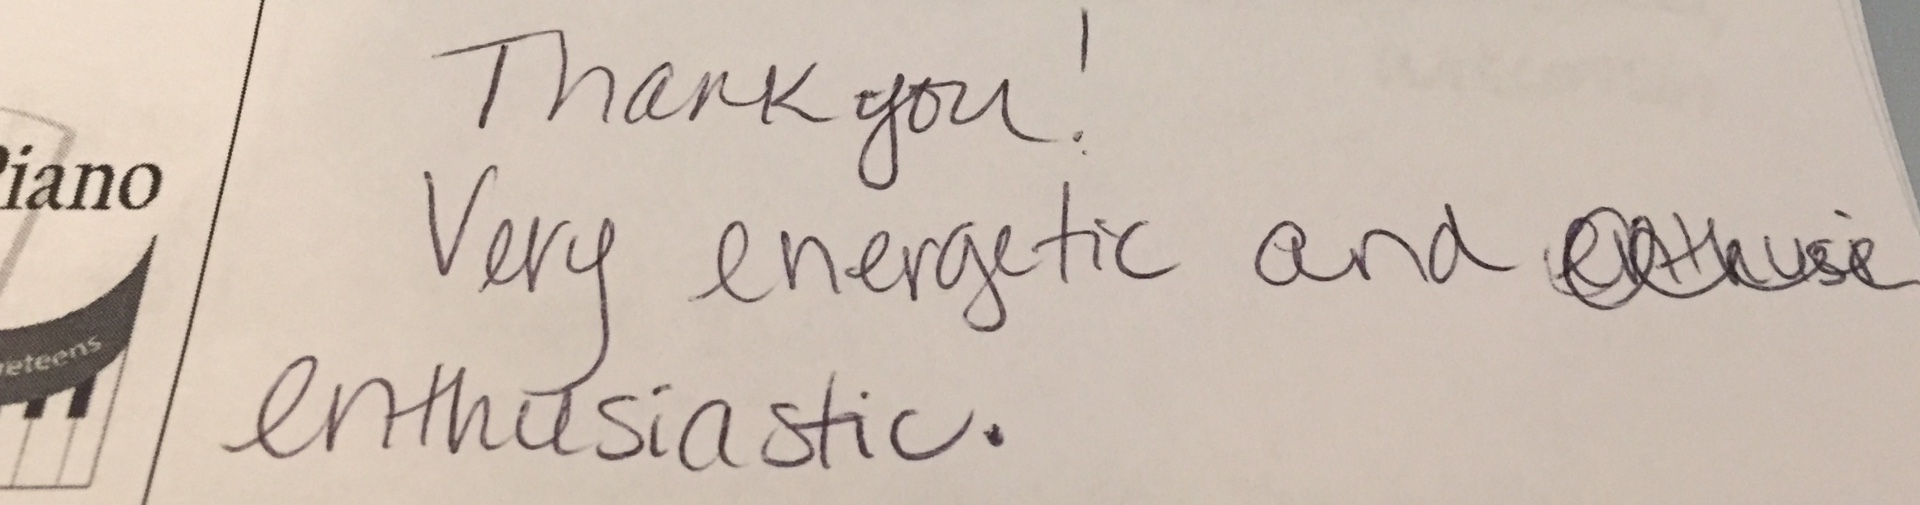 Piano
eteens
Thank you!
Very energetic and enthusie
enthusiastic.